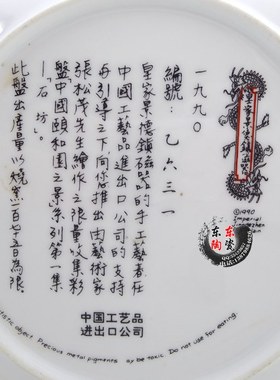 一九九〇
編號：乙六三一
皇家景德鎮磁器的手工藝者在
中國工藝品進出口公司的支持
與引導之下向您推出由藝術家
張松茂先生繪作之限量收集彩
盤「中國頤和園之景系列第一集
－「石坊」。
此盤出產量以燒窯一百七十五日為限
中国工艺品
进出口公司
©1990
Imperial
Jingdezhen
东东
陶瓷
object Precious metal pigments may be toxic. Do not use for eating.